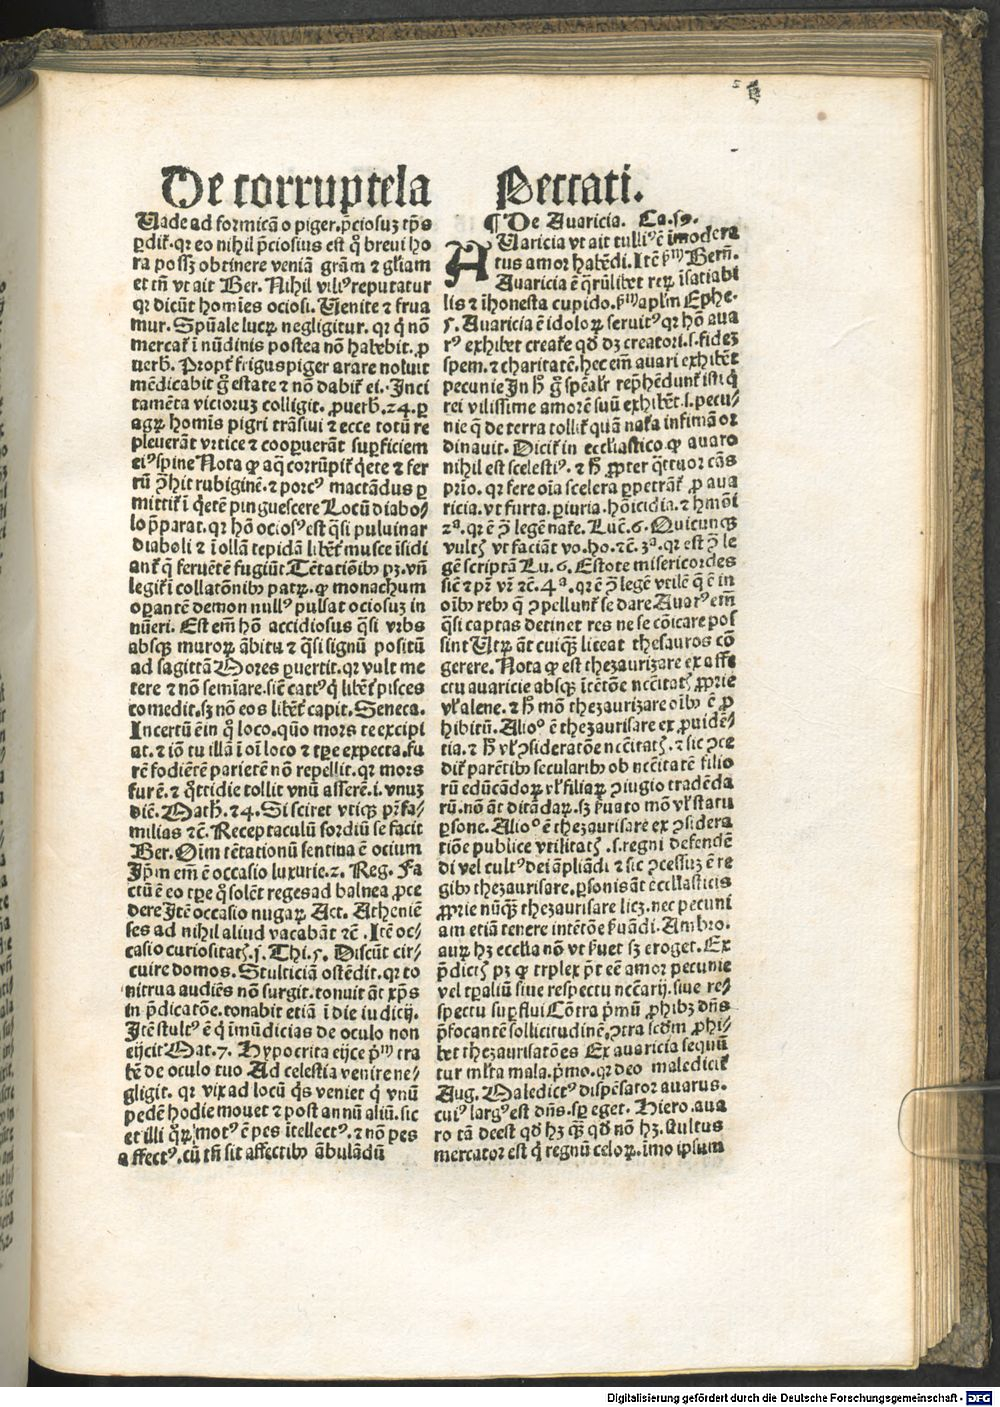 De corruptela Peccati.
Uade ad formicã o piger. p̄ciosuz tp̄s
ꝑdit᷑. qꝛ eo nihil p̄ciosius est qͦ breui ho
ra possz obtinere veniã grãm ⁊ gl̓iam
et tñ vt ait Ber. Nihil viliꝰ reputatur
qꝛ dicũt homĩes ociosi. Uenite ⁊ frua
mur. Spũale lucꝝ negligitur. qꝛ q̇ nõ
mercat᷑ ĩ nũdinis postea nõ habebit. ꝓ
uerb̄. Propt̓ frigus piger arare noluit
mẽdicabit gͦ estate ⁊ nõ dabit᷑ ei. Inci
tamẽta vicioruz colligit. ꝓuerb̄. 24. ꝑ
agꝝ homĩs pigri trãsiui ⁊ ecce totũ re
pleuerãt vrtice ⁊ cooꝑuerãt suꝑficiem
eiꝰ spine Nota ꝙ aq̃ corrũpit᷑ q̇ete ⁊ fer
rũ ꝯ̃hit rubiginẽ. ⁊ porcꝰ mactãdus ꝑ
mittit᷑ ĩ q̇ete pinguescere Locũ diabo-
lo p̄parat. qꝛ hõ ociosꝰ est q̃si puluinar
diaboli ⁊ ĩ ollã tepidã libẽt̓ musce ĩsidi
ant᷑ q̃ feruẽtẽ fugiũt Tẽtatiõibꝰ pꝫ. vñ
legit᷑ ĩ collatõnibꝰ patꝝ. ꝙ monachum
oꝑantẽ demon nullꝰ pulsat ociosuz in
nũeri. Est em̃ hõ accidiosus q̃si vrbs
absqꝫ muroꝝ ãbitu ⁊ q̃si signũ positũ
ad sagittã Mores ꝑuertit. qꝛ vult me
tere ⁊ nõ semĩare. sic̃ catꝰ q̇ libẽt̓ pisces
comedit. sꝫ nõ eos libẽt̓ capit. Seneca.
Incertũ ẽ in qͦ loco. quõ mors te excipi
at. ⁊ iõ tu illã ĩ oĩ loco ⁊ tꝑe expecta. fu
rẽ fodiẽtẽ parietẽ nõ repellit. qꝛ mors
fur ẽ. ⁊ q̃ttidie tollit vnũ asserẽ. i. vnuz
diẽ. Math̄. 24. Si sciret vtiqꝫ pr̃fa-
milias ⁊c̃. Receptaculũ sordiũ se facit
Ber. Oĩm tẽtationũ sentina ẽ ocium
Ip̃m em̃ ẽ occasio luxurie. 2. Reg. Fa
ctũ ẽ eo tꝑe qͦ solẽt reges ad balnea ꝓce
dere Itẽ occasio nugaꝝ Act. Atheniẽ
ses ad nihil aliud vacabãt ⁊c̃. Itẽ oc-
casio curiositat̄ꝭ. j. Thi. 5. Discũt cir-
cuire domos. Stulticiã ostẽdit. qꝛ to
nitrua audiẽs nõ surgit. tonuit ãt xp̃s
in p̄dicatõe. tonabit etiã ĩ die iudicij.
Itẽ stultꝰ ẽ q̇ ĩmũdicias de oculo non
eijcit Mat. 7. Hypocrita eijce p̄ᵐ tra
bẽ de oculo tuo Ad celestia venire ne-
gligit. qꝛ vix ad locũ q̇s veniet q̇ vnũ
pedẽ hodie mouet ⁊ post annũ aliũ. sic
et illi qͦꝝ motꝰ ẽ pes ĩtellectꝰ. ⁊ nõ pes
affectꝰ. cũ tñ sit affectibꝰ ãbulãdũ
¶ De Auaricia. Ca. 59.
AUaricia vt ait tulliꝰ ẽ ĩmodera
tus amor habẽdi. Itẽ ẜᵐ Berñ.
Auaricia ẽ q̃rũlibet reꝝ ĩsatiabi
lis ⁊ ĩhonesta cupido. ẜᵐ apl̃m Ephe.
5. Auaricia ẽ idoloꝝ seruitꝰ qꝛ hõ aua
rꝰ exhibet creat̓e qd̓ dꝫ creatori. s. fidez
spem. ⁊ charitatẽ. hec em̃ auari exhibẽt
pecunie In ħ gͦ spẽalr̓ rep̄hẽdunt᷑ isti q̇
rei vilissime amorẽ suũ exhibẽt. s. pecu-
nie q̃ de terra tollit᷑ quã nat̓a infimã or
dinauit. Dicit᷑ in eccl̓iastico. ꝙ auaro
nihil est scelestiꝰ. ⁊ ħ ꝓpter q̃ttuor cãs
prĩo. qꝛ fere oĩa scelera ꝑpetrãt᷑ ꝓ aua
ricia. vt furta. ꝑiuria. hõicidia. ⁊ hmõi
2ª. qꝛ ẽ ꝯ̃ legẽ nat̓e. Luẽ. 6. Quicunqꝫ
vult̄ꝭ vt faciãt vo. ho. ⁊c̃. 3ª. qꝛ est ꝯ̃ le
gẽ scriptã Lu. 6. Estote misericordes
sic̃ ⁊ pr̃ vr̃ ⁊c̃. 4ª. qꝛ ẽ ꝯ̃ legẽ vtilẽ q̃ ẽ in
oĩbꝰ rebꝰ q̃ ꝯpellunt᷑ se dare Auarꝰ em̃
q̃si captas detinet res ne se cõicare pos
sint Utꝝ ãt cuiqꝫ liceat thesauros cõ
gerere. Nota ꝙ est thezaurizare ex affe
ctu auaricie absqꝫ ĩtẽtõe nc̃citat̄ꝭ ꝓprie
vl̓ aliene. ⁊ ħ mõ thezaurizare oĩbꝰ ẽ ꝓ
hibitũ. Alioͦ ẽ thezaurisare ex ꝓuidẽ-
tia. ⁊ ħ vl̓ ꝯsideratõe nc̃citat̄ꝭ. ⁊ sic ꝯce
dit᷑ parẽtibꝰ secularibꝰ ob nc̃citatẽ filio
rũ edũcãdoꝝ vl̓ filiaꝝ ꝯiugio tradẽda
rũ. nõ ãt ditãdaꝝ. sꝫ ẜuato mõ vl̓ statu
ꝑsone. Alioͦ ẽ thezaurisare ex ꝯsidera
tiõe publice vtilitat̄ꝭ. s. regni defendẽ
di vel cultꝰ dei ãpliãdi ⁊ sic ꝯcessuz ẽ re
gibꝰ thezaurisare. ꝑsonis ãt eccl̓iasticis
ꝓprie nũqꝫ thezaurisare licꝫ. nec pecuni
am etiã tenere intẽtõe ẜuãdi. Ambro.
auꝝ hꝫ eccl̓ia nõ vt ẜuet sꝫ eroget. Ex
p̄dict̄ꝭ pꝫ ꝙ triplex p̃t eẽ amor pecunie
vel tꝑaliũ siue respectu nc̃carij. siue re-
spectu suꝑflui Cõtra p̄mũ ꝓhibꝫ dñs
p̄focantẽ sollicitudinẽ. ꝯtra scd̓m ꝓhi-
bet thezaurisatões Ex auaricia sequũ
tur ml̓ta mala. p̄mo. qꝛ deo maledicit᷑
Aug. Maledictꝰ dispẽsator auarus.
cuiꝰ largꝰ est dñs. sꝑ eget. Hiero. aua
ro tã deest qd̓ hꝫ qꝫ qd̓ nõ hꝫ. stultus
mercator est q̇ regnũ celoꝝ. ĩmo ipsum
Digitalisierung gefördert durch die Deutsche Forschungsgemeinschaft - DFG